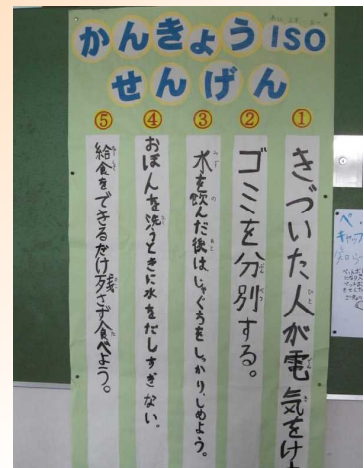 かんきょうISO
せんげん
①
きづいた人が電気をけ
②
ゴミを分別する。
③
水を飲んだ後はじゃぐちをしっかりしめよう。
④
おぼんを洗うときに水をだしすぎない。
⑤
給食をできるだけ残さず食べよう。